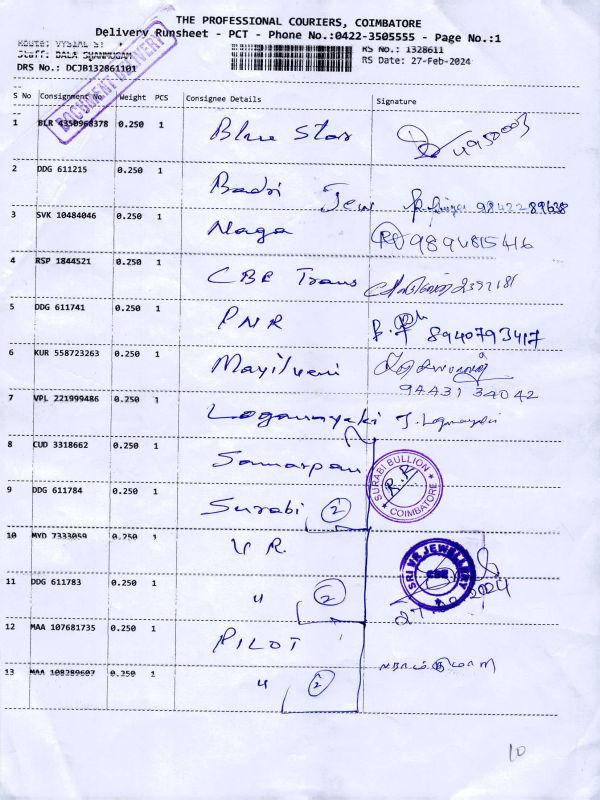 THE PROFESSIONAL COURIERS, COIMBATORE
Delivery Runsheet - PCT - Phone No.:0422-3505555 - Page No.:1
Route: VYSIAL ST
RS No.: 1328611
Staff: BALA SHANMUGAM
RS Date: 27-Feb-2024
DRS No.: DCJB132861101
DOCUMENT DELIVERY
S No Consignment No Weight PCS Consignee Details Signature
1 BLR 4350968378 0.250 1 Blue Star 4950003
2 DDG 611215 0.250 1 Badri Jew 9842289638
3 SVK 10484046 0.250 1 Naga 9894815416
4 RSP 1844521 0.250 1 CBE Trans 2392181
5 DDG 611741 0.250 1 PNR 8940793417
6 KUR 558723263 0.250 1 Mayilvani
9443134042
7 VPL 221999486 0.250 1 Loganayaki J. Loganayaki
8 CUD 3318662 0.250 1 Samarpan
SURABI BULLION COIMBATORE
R.R
9 DDG 611784 0.250 1 Surabi 2
10 MYD 7333059 0.250 1 V R.
SRI VR JEWELLERY CBE
11 DDG 611783 0.250 1 " 2
12 MAA 107681735 0.250 1 PILOT
13 MAA 108289607 0.250 1 " 2
10